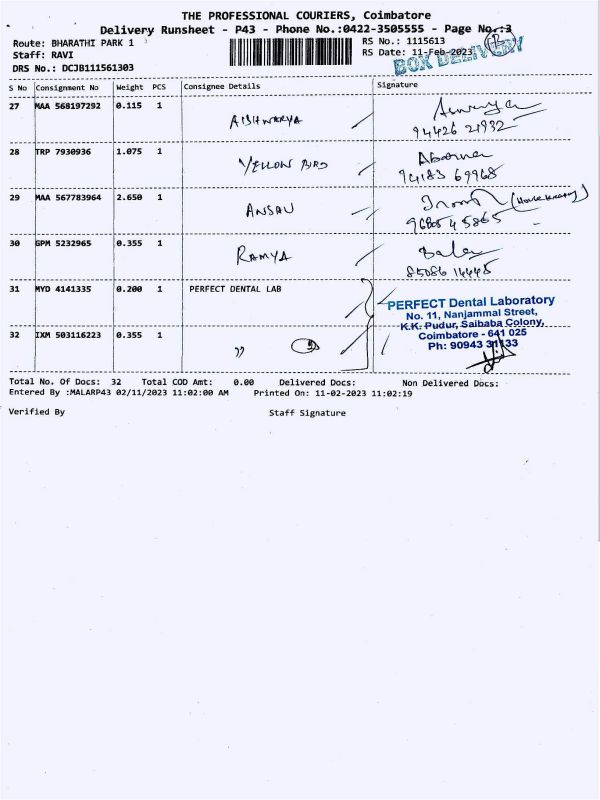 THE PROFESSIONAL COURIERS, Coimbatore
Delivery Runsheet - P43 - Phone No.:0422-3505555 - Page No.:3
Route: BHARATHI PARK 1 RS No.: 1115613
Staff: RAVI RS Date: 11-Feb-2023
DRS No.: DCJB111561303 BOX DELIVERY
S No Consignment No Weight PCS Consignee Details Signature
27 MAA 568197292 0.115 1 AISHWARYA
94426 21932
28 TRP 7930936 1.075 1 YELLOW BIRD
94183 69968
29 MAA 567783964 2.650 1 ANSAU
30 GPM 5232965 0.355 1 RAMYA
85086 14445
31 MYD 4141335 0.200 1 PERFECT DENTAL LAB
PERFECT Dental Laboratory
No. 11, Nanjammal Street,
K.K. Pudur, Saibaba Colony,
Coimbatore - 641 025
Ph: 90943 31133
32 IXM 503116223 0.355 1 "
Total No. Of Docs: 32 Total COD Amt: 0.00 Delivered Docs: Non Delivered Docs:
Entered By :MALARP43 02/11/2023 11:02:00 AM Printed On: 11-02-2023 11:02:19
Verified By Staff Signature